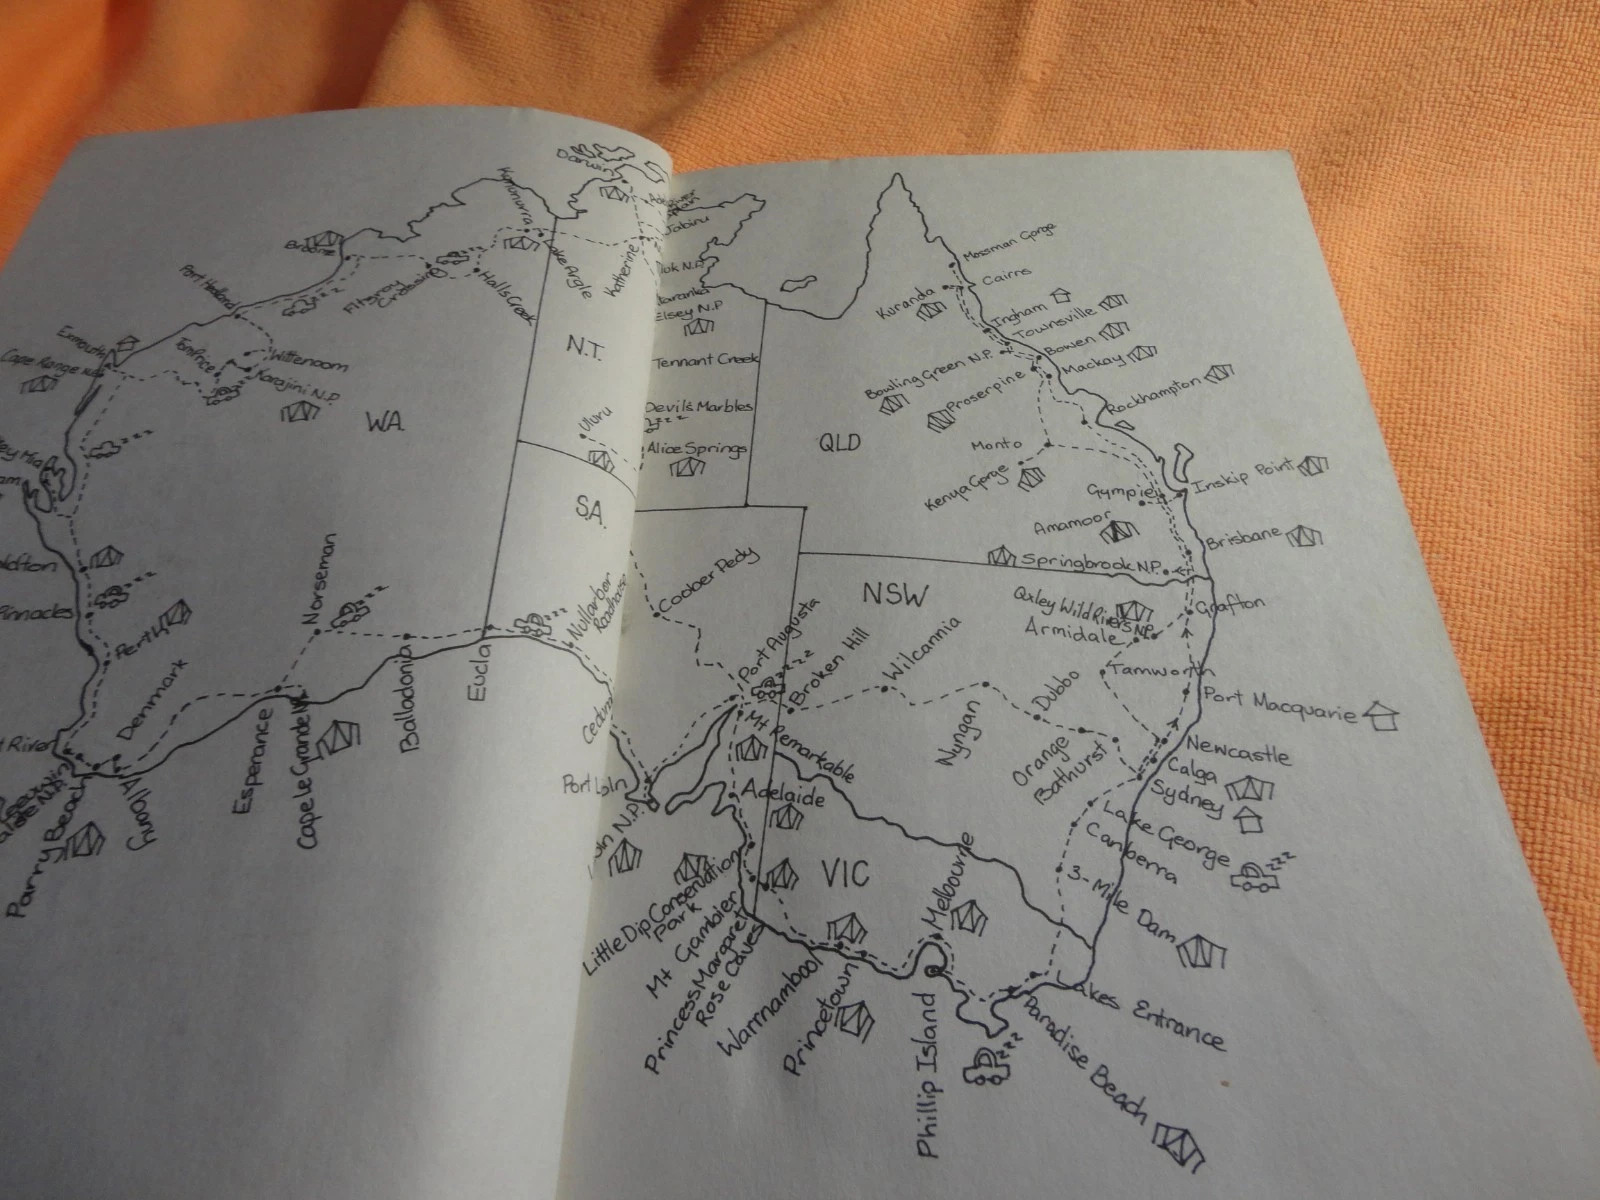 Darwin
Kununurra
Jabiru
Broome
Lake Argyle
Katherine
Port Hedland
Fitzroy
Crossing
Halls Creek
Elsey N.P.
Exmouth
Tom Price
Wittenoom
Cape Range N.P.
Karajini N.P.
N.T.
Tennant Creek
WA
Devil's Marbles
Uluru
Alice Springs
S.A.
Pinnacles
Perth
Norseman
Nullarbor
Roadhouse
Coober Pedy
Denmark
Balladonia
Eucla
Esperance
Cape Le Grande N.P.
Albany
Parry Beach
Mossman Gorge
Cairns
Kuranda
Ingham
Townsville
Bowling Green N.P.
Bowen
Mackay
Proserpine
Rockhampton
QLD
Monto
Kenya Gorge
Gympie
Inskip Point
Amamoor
Brisbane
Springbrook N.P.
NSW
Grafton
Armidale
Tamworth
Port Augusta
Broken Hill
Wilcannia
Port Macquarie
Dubbo
Nyngan
Mt Remarkable
Orange
Bathurst
Newcastle
Calga
Sydney
Adelaide
Lake George
Canberra
3-Mile Dam
VIC
Melbourne
Little Dip Conservation
Park
Mt Gambier
Princess Margaret
Rose Caves
Warrnambool
Princetown
Phillip Island
Lakes Entrance
Paradise Beach